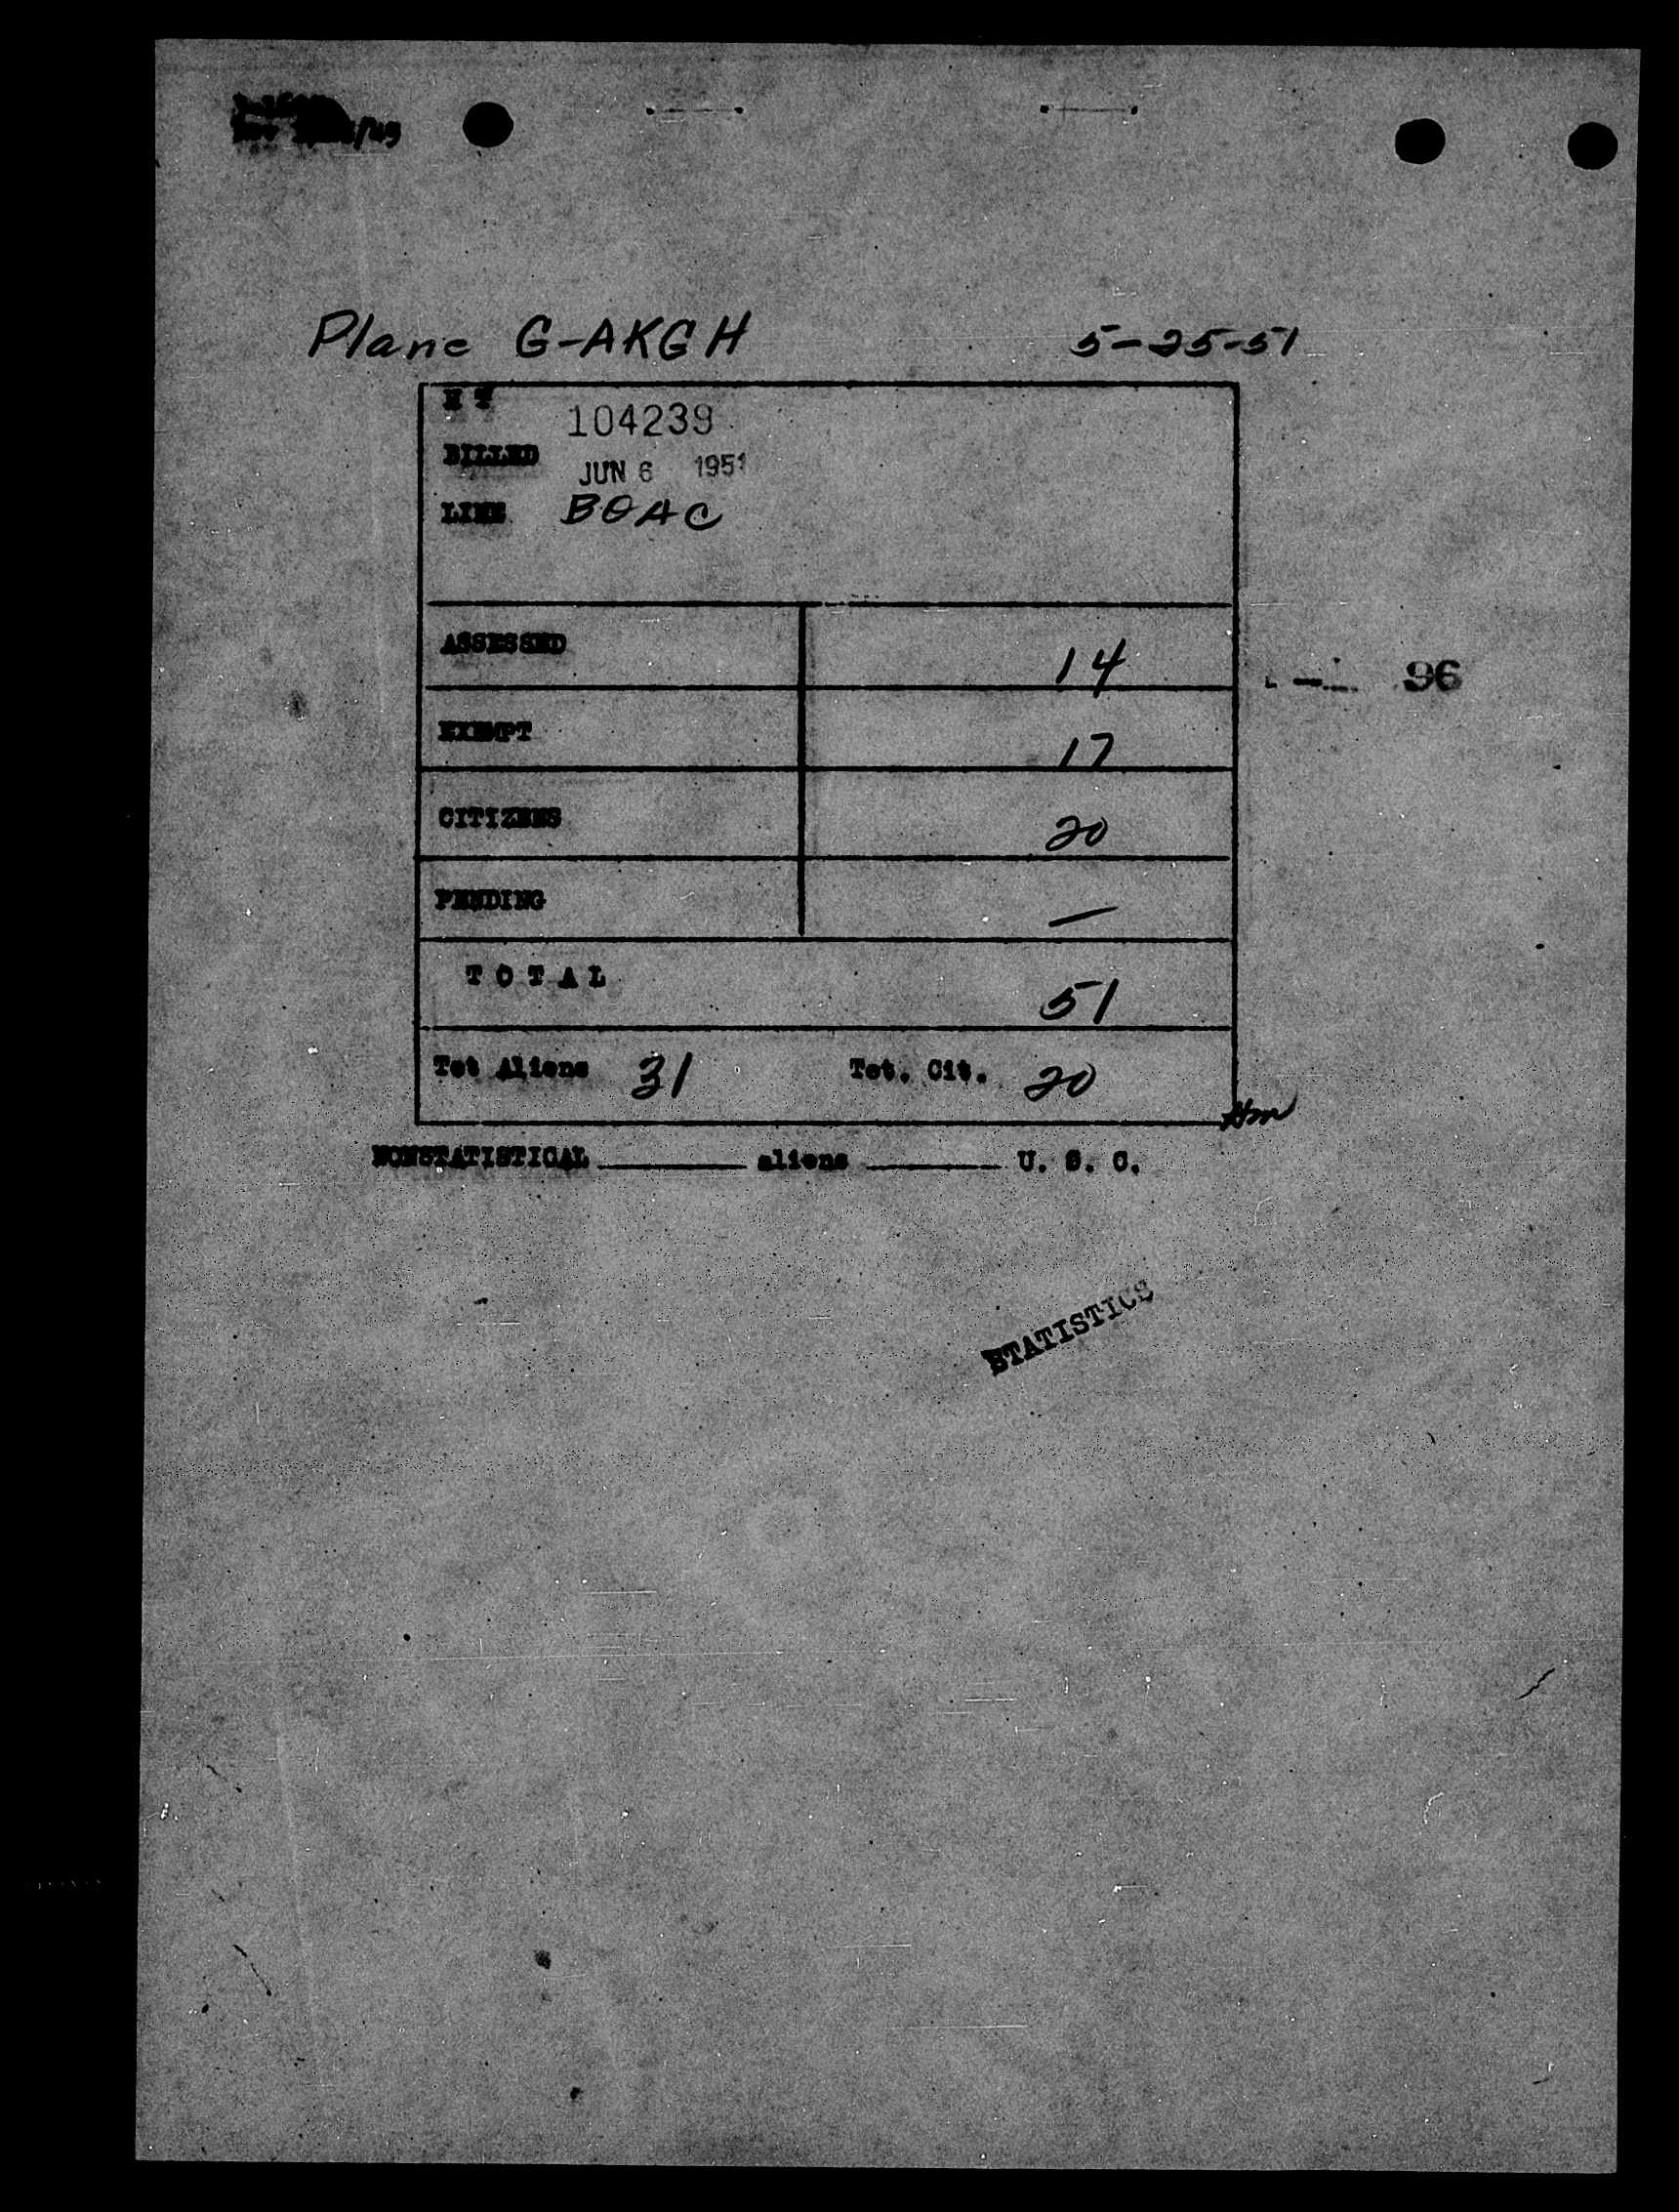 Plane G-AKGH 5-25-51
H T 104239
BILLED JUN 6 1951
LINE BOAC
ASSESSED 14
96
EXEMPT 17
CITIZENS 20
PENDING —
TOTAL 51
Tot Aliens 31 Tot. Cit. 20
Hm
NONSTATISTICAL ________ aliens ________ U. S. C.
STATISTICS